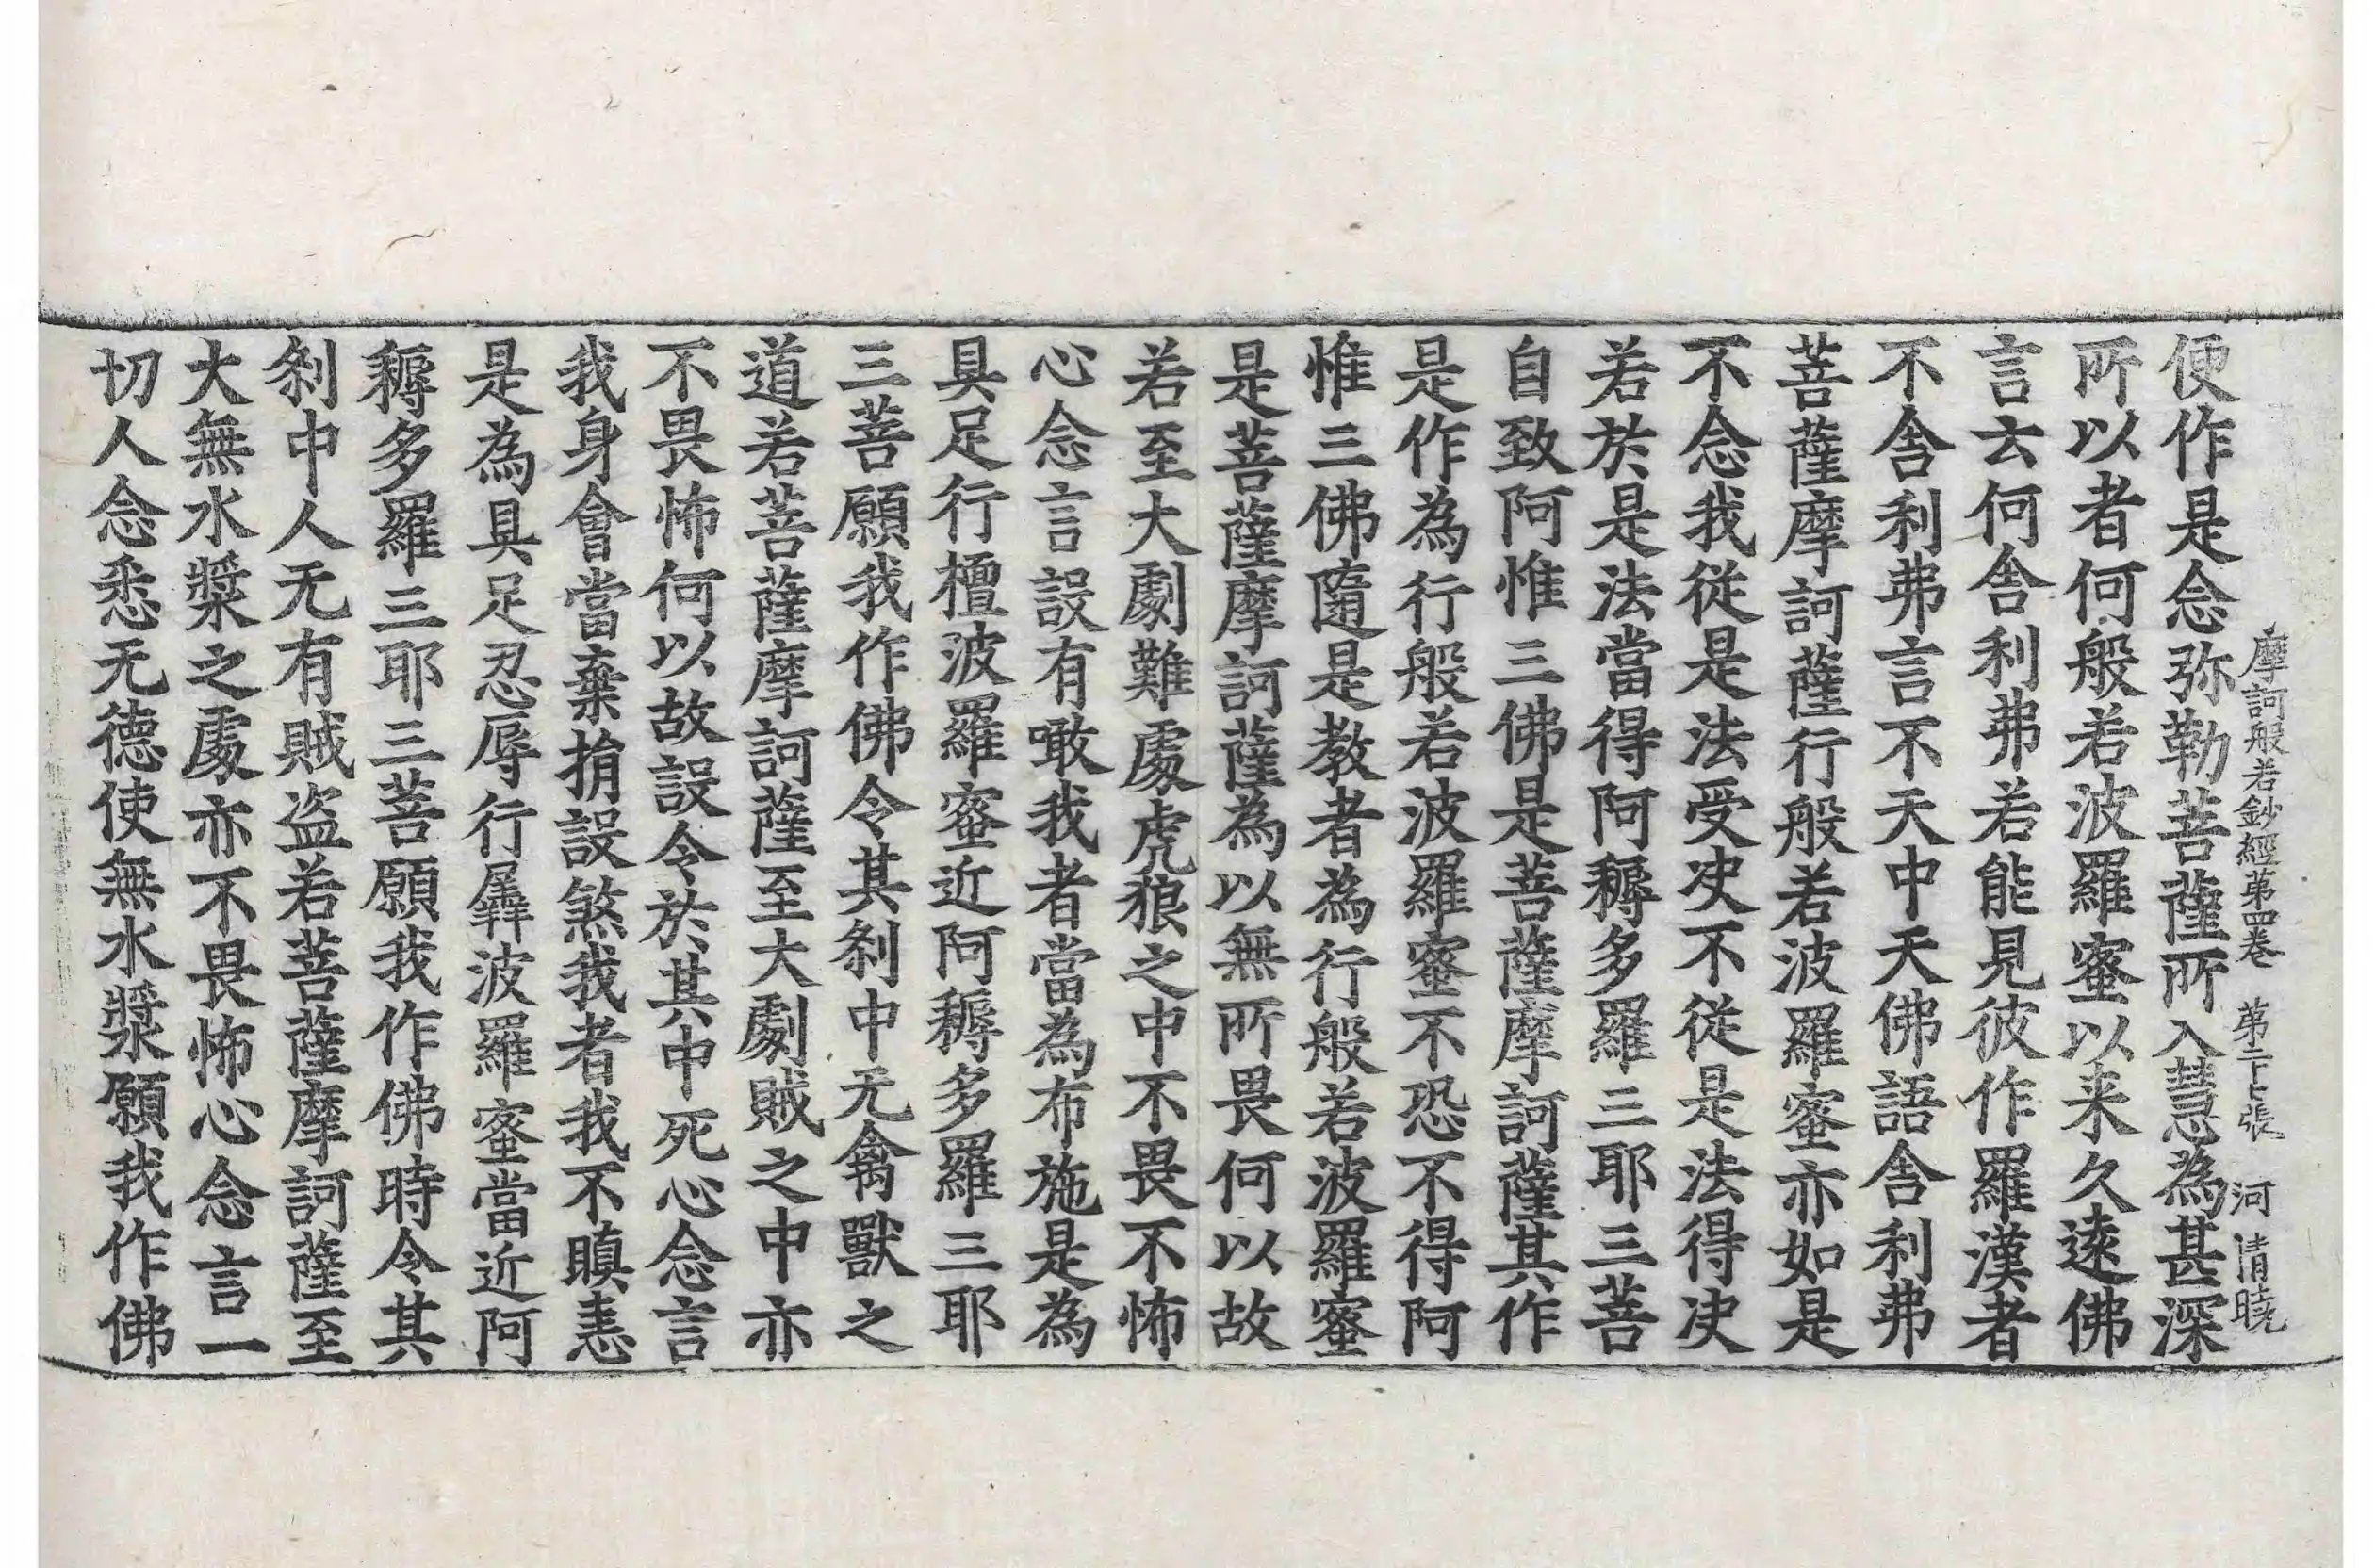 摩訶般若鈔經第四卷 第二十七張 河 清曉
便作是念弥勒菩薩所入慧為甚深
所以者何般若波羅蜜以来久遠佛
言云何舎利弗若能見彼作羅漢者
不舎利弗言不天中天佛語舎利弗
菩薩摩訶薩行般若波羅蜜亦如是
不念我從是法受决不從是法得决
若於是法當得阿耨多羅三耶三菩
自致阿惟三佛是菩薩摩訶薩其作
是作為行般若波羅蜜不恐不得阿
惟三佛隨是教者為行般若波羅蜜
是菩薩摩訶薩為以無所畏何以故
若至大劇難處虎狼之中不畏不怖
心念言設有噉我者當為布施是為
具足行檀波羅蜜近阿耨多羅三耶
三菩願我作佛令其剎中无禽獸之
道若菩薩摩訶薩至大劇賊之中亦
不畏怖何以故設令於其中死心念言
我身會當棄捐設煞我者我不瞋恚
是為具足忍辱行羼波羅蜜當近阿
耨多羅三耶三菩願我作佛時令其
剎中人无有賊盗若菩薩摩訶薩至
大無水漿之處亦不畏怖心念言一
切人念悉无德使無水漿願我作佛